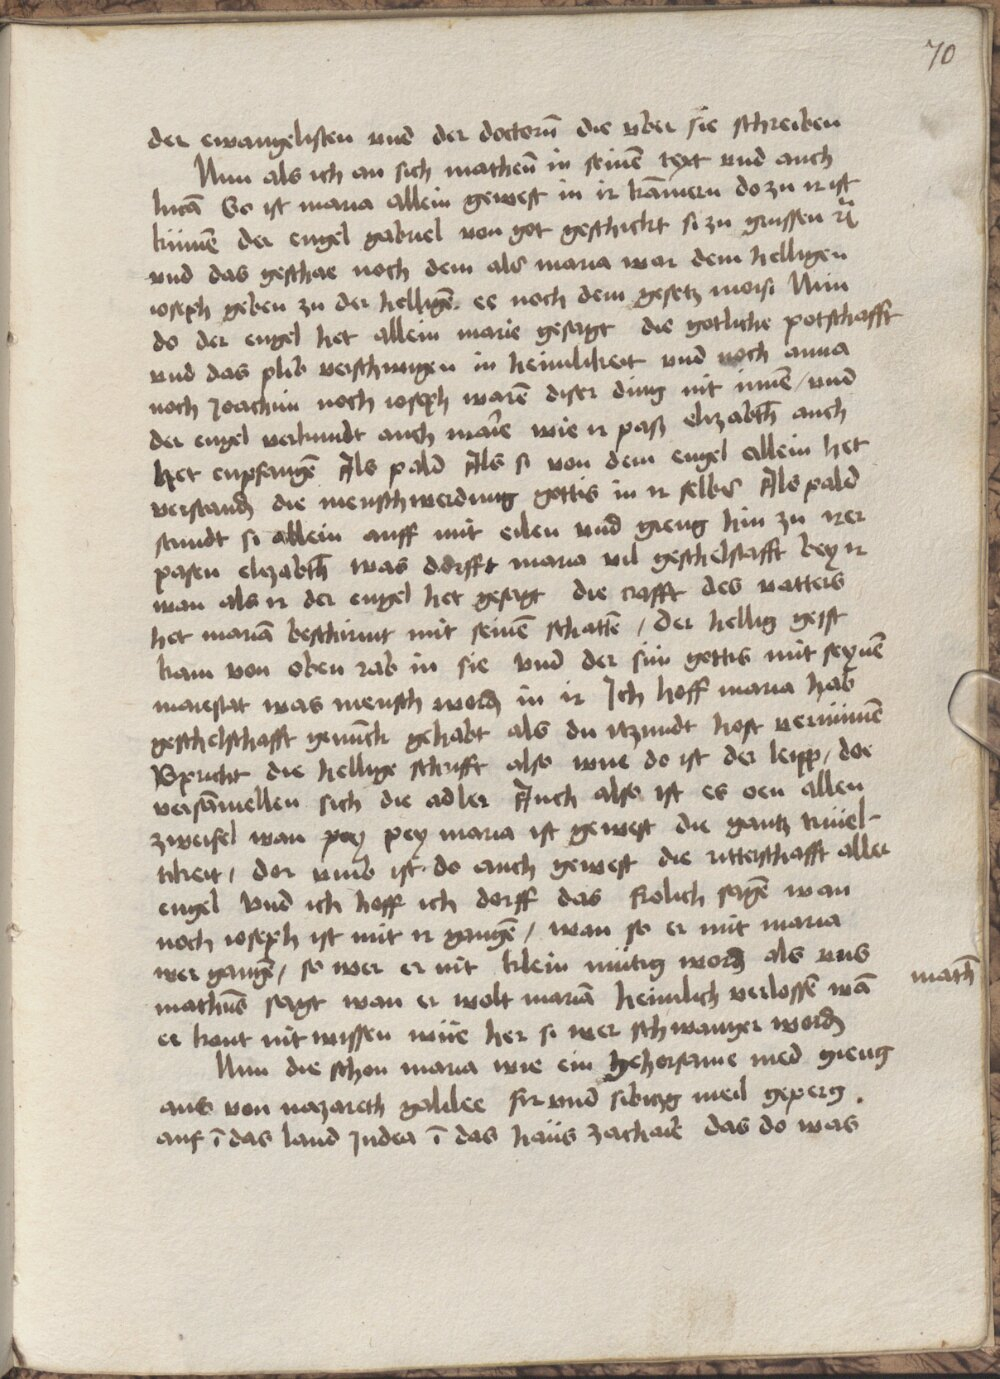 70
der ewangelisten vnd der doctorn̄ die vber sie schreiben
Nun als ich an sich matheū in seinē text vnd auch
lucā So ist maria allein gewest in ir kāmern do zu ir ist
kūmē der engel gabriel von got geschickt si zu grussen
vnd das geschae noch dem als maria war dem helligen
ioseph geben zu der helligē ee noch dem gesetz moisi Nun
do der engel het allein marie gesagt die gotliche potschafft
vnd das plib verschwigen in heimlikeit vnd noch anna
noch Joachim noch ioseph warē diser ding nit innē / vnd
der engel verkundt auch marie wie ir paß elizabth̄ auch
het enpfangē Als pald Als si von dem engel allein het
verstand̄ die menschwerdung gottis in ir selbs Als pald
stundt si allein auff mit eilen vnd gieng hin zu irer
pasen elizabth̄ was ddrfft maria vil geschelscafft bey ir
wan als ir der engel het gesagt die crafft des vatters
het mariā beschirmt mit seinē schattē / der hellig geist
kam von oben rab in sie vnd der sun gottis mit seynē
maiestat was mensch word̄ in ir Ich hoff maria hab
geschelschafft genuck gehabt als du itzundt host vernūmē
Spricht die hellige schrifft also wue do ist der leipp / doe
versāmellen sich die adler Auch also ist es oen allen
zweifel wan pey pey maria ist gewest die gantz triuel-
tikeit / dor vmb ist do auch gewest die ritterschafft aller
engel Vnd ich hoff ich dorff das frolich sagē wan
noch ioseph ist mit ir gangē / wan so er mit maria
wer gangē / so wer er nit klein mütig word̄ als vns
math̄
matheus sagt wan er wolt mariā heimlich verlossē wā
er kont nit wissen wüe her si wer schwanger word̄
Nun die schon maria wie ein gehorsame med gieng
aus von nazareth galilee fir vnd sibtzg meil geperg.
auf ī das land Judea ī das haüs zacharie das do was